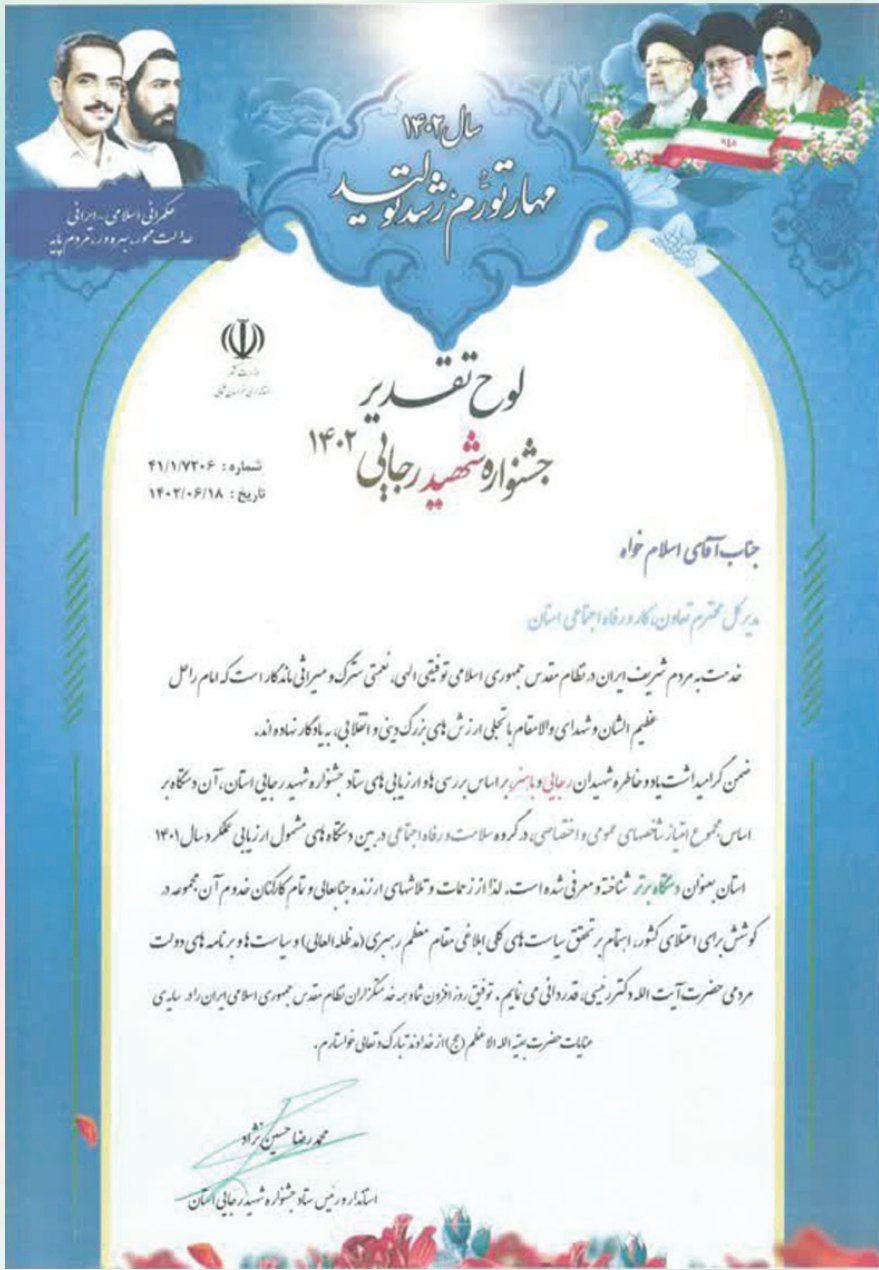 سال ۱۴۰۲
مهار تورم، رشد تولید
حکمرانی اسلامی - ایرانی
عدالت محور، بهره ور، مردم پایه
وزارت کشور
استانداری خراسان شمالی
لوح تقدیر
جشنواره شهید رجایی ۱۴۰۲
شماره : ۴۱/۱/۷۲۰۶
تاریخ : ۱۴۰۲/۰۶/۱۸
جناب آقای اسلام خواه
مدیر کل محترم تعاون، کار و رفاه اجتماعی استان
خدمت به مردم شریف ایران در نظام مقدس جمهوری اسلامی توفیقی الهی، نعمتی سترگ و میراثی ماندگار است که امام راحل
عظیم الشان و شهدای والامقام با تجلی ارزش های بزرگ دینی و انقلابی، به یادگار نهاده اند.
ضمن گرامیداشت یاد و خاطره شهیدان رجایی و باهنر، بر اساس بررسی ها و ارزیابی های ستاد جشنواره شهید رجایی استان، آن دستگاه بر
اساس مجموع امتیاز شاخصهای عمومی و اختصاصی، در گروه سلامت و رفاه اجتماعی در بین دستگاه های مشمول ارزیابی عملکرد سال ۱۴۰۱
استان بعنوان دستگاه برتر شناخته و معرفی شده است. لذا از زحمات و تلاشهای ارزنده جنابعالی و تمام کارکنان خدوم آن مجموعه در
کوشش برای اعتلای کشور، اهتمام بر تحقق سیاست های کلی ابلاغی مقام معظم رهبری (مدظله العالی) و سیاست ها و برنامه های دولت
مردمی حضرت آیت الله دکتر رئیسی، قدردانی می نمایم. توفیق روز افزون شما و همه خدمتگزاران نظام مقدس جمهوری اسلامی ایران را در سایه ی
عنایات حضرت بقیه الله الاعظم (عج) از خداوند تبارک و تعالی خواستارم.
محمدرضا حسین نژاد
استاندار و رئیس ستاد جشنواره شهید رجایی استان